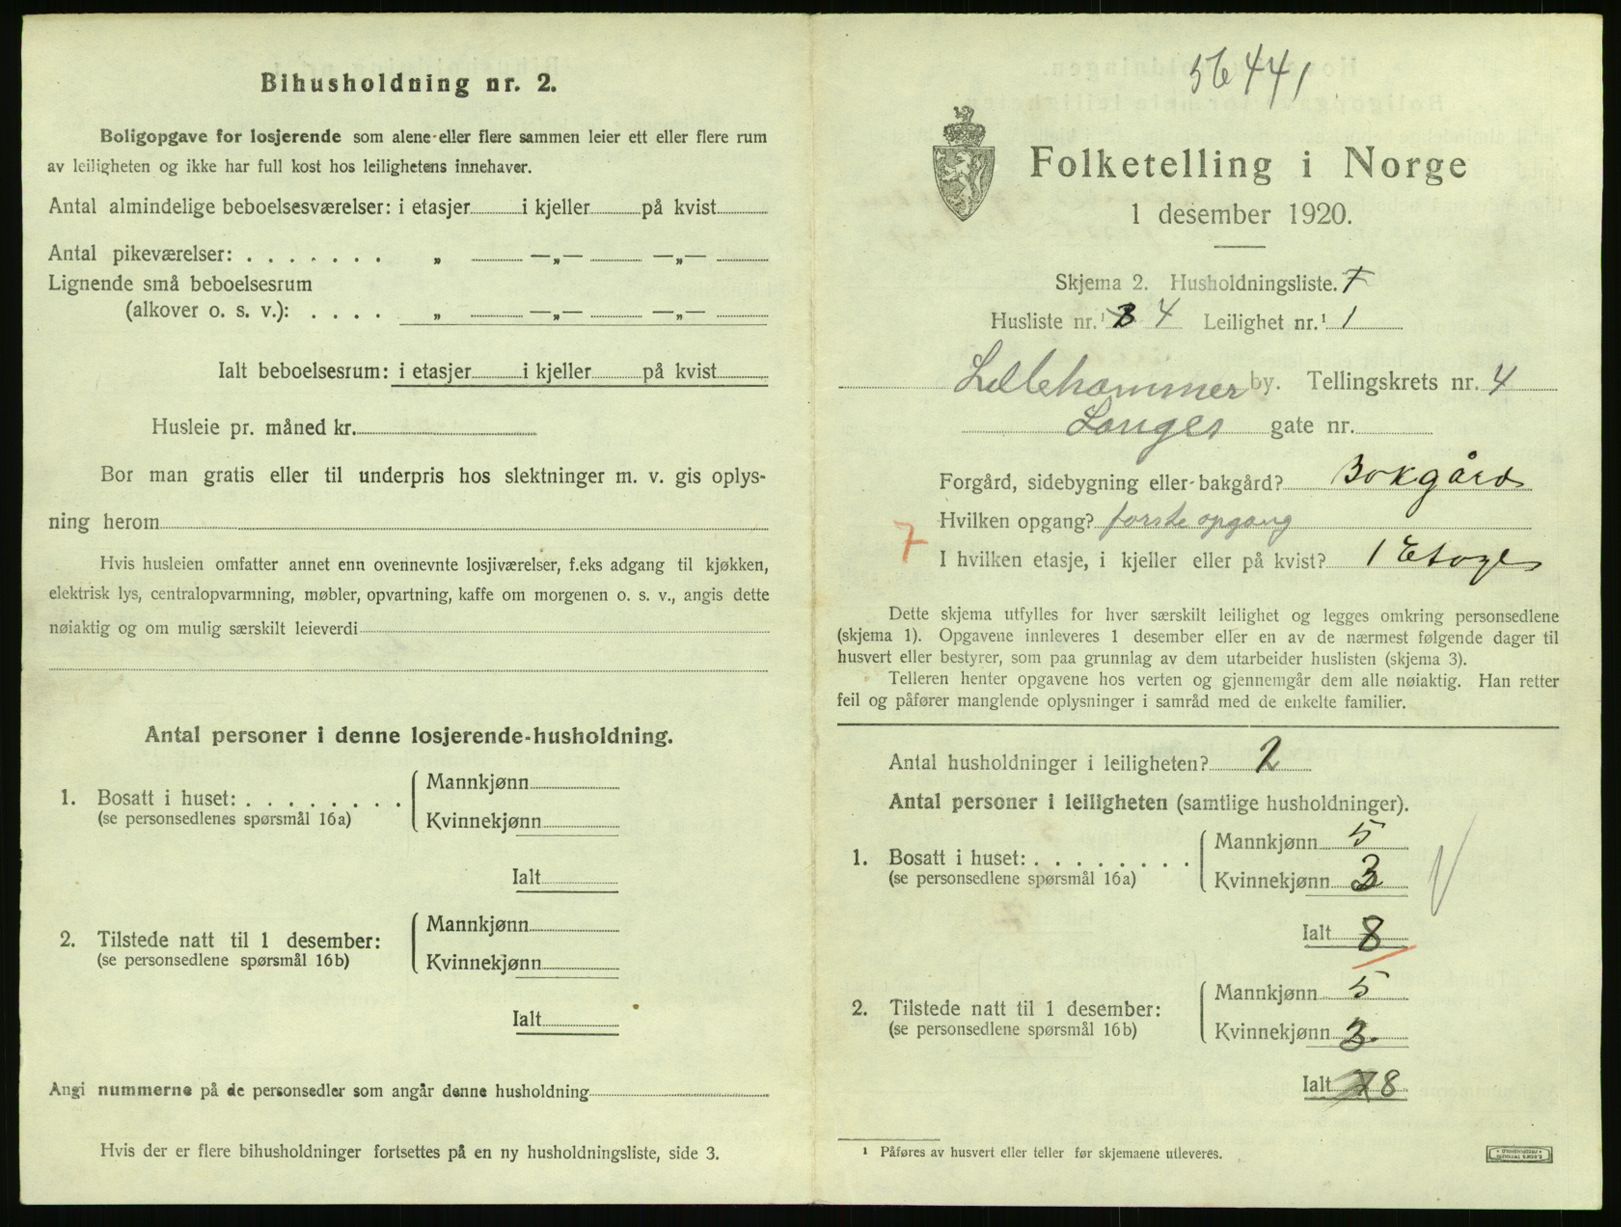 Bihusholdning nr. 2.
Boligopgave for losjerende som alene eller flere sammen leier ett eller flere rum
av leiligheten og ikke har full kost hos leilighetens innehaver.
Antal almindelige beboelsesværelser: i etasjer i kjeller på kvist
Antal pikeværelser: . . . . . . . „ —„— —„—
Lignende små beboelsesrum
(alkover o. s. v.): . . . . „ —„— —„—
Ialt beboelsesrum: i etasjer i kjeller på kvist
Husleie pr. måned kr.
Bor man gratis eller til underpris hos slektninger m. v. gis oplys-
ning herom
Hvis husleien omfatter annet enn ovennevnte losjiværelser, f.eks adgang til kjøkken,
elektrisk lys, centralopvarmning, møbler, opvartning, kaffe om morgenen o. s. v., angis dette
nøiaktig og om mulig særskilt leieverdi
Antal personer i denne losjerende-husholdning.
Mannkjønn
1. Bosatt i huset: . . . . . . . .
(se personsedlenes spørsmål 16a)
Kvinnekjønn
Ialt
Mannkjønn
2. Tilstede natt til 1 desember:
(se personsedlene spørsmål 16b)
Kvinnekjønn
Ialt
Angi nummerne på de personsedler som angår denne husholdning
Hvis der er flere bihusholdninger fortsettes på en ny husholdningsliste, side 3.
56441
Folketelling i Norge
1 desember 1920.
Skjema 2. Husholdningsliste. 7
Husliste nr.¹ 3 4 Leilighet nr.¹ 1
Lillehammer by. Tellingskrets nr. 4
Langes gate nr.
Forgård, sidebygning eller bakgård? Bakgård
Hvilken opgang? første opgang
7
I hvilken etasje, i kjeller eller på kvist? 1 Etage
Dette skjema utfylles for hver særskilt leilighet og legges omkring personsedlene
(skjema 1). Opgavene innleveres 1 desember eller en av de nærmest følgende dager til
husvert eller bestyrer, som paa grunnlag av dem utarbeider huslisten (skjema 3).
Telleren henter opgavene hos verten og gjennemgår dem alle nøiaktig. Han retter
feil og påfører manglende oplysninger i samråd med de enkelte familier.
Antal husholdninger i leiligheten? 2
Antal personer i leiligheten (samtlige husholdninger).
Mannkjønn 5
1. Bosatt i huset: . . . . . . . .
(se personsedlene spørsmål 16a)
Kvinnekjønn 3
Ialt 8
Mannkjønn 5
2. Tilstede natt til 1 desember:
(se personsedlene spørsmål 16b)
Kvinnekjønn 3
Ialt 7 8
¹ Påføres av husvert eller teller før skjemaene utleveres.